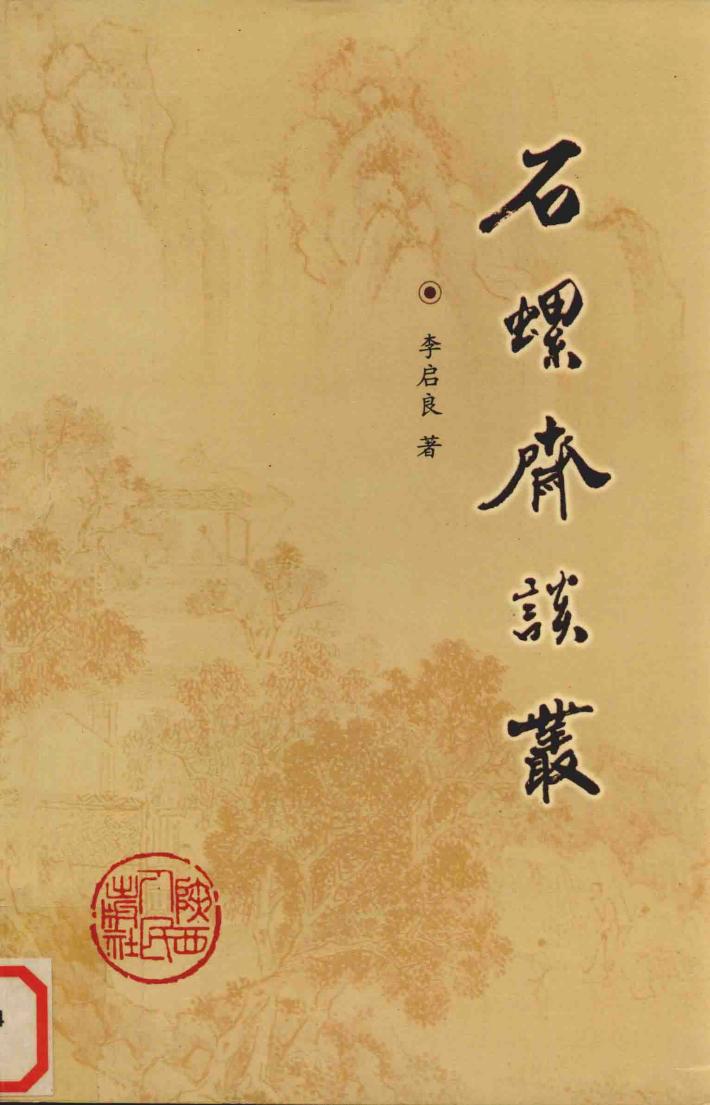 石螺齋談叢
李启良 著
陕西人民出版社
4